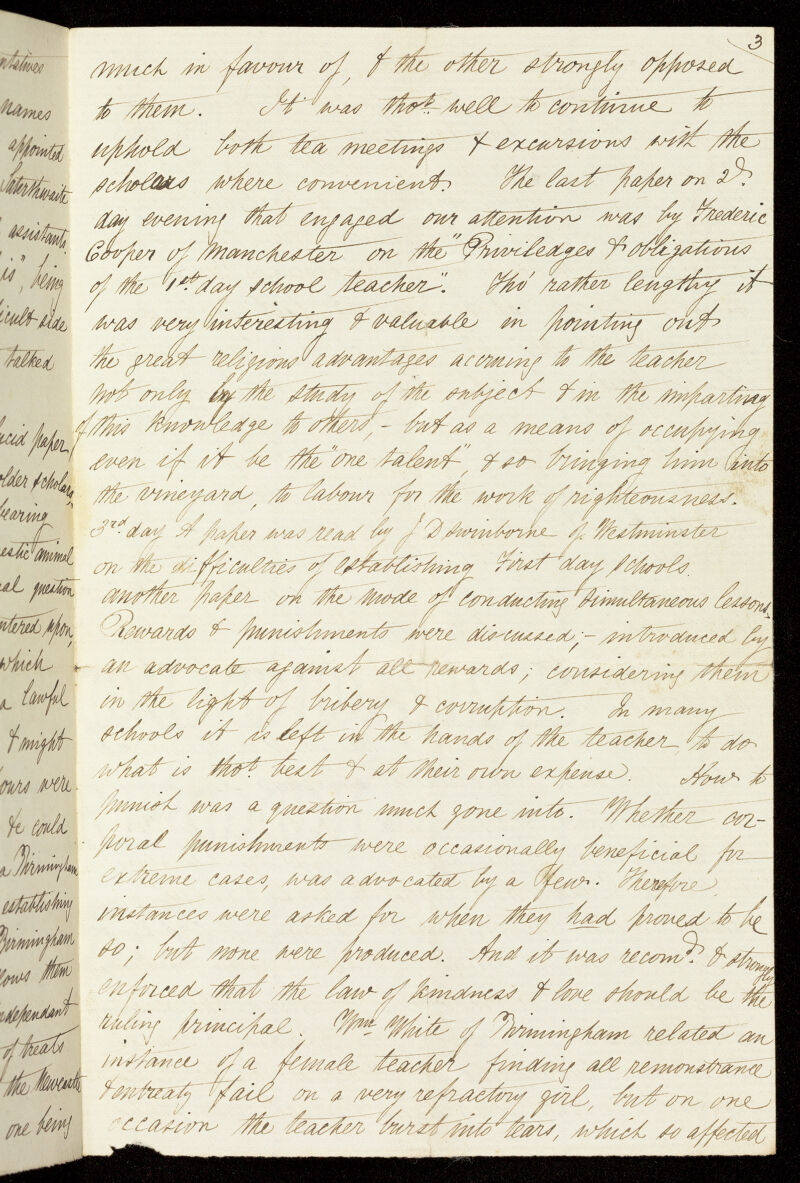 3
much in favour of, & the other strongly opposed
to them. It was thot. well to continue to
uphold both tea meetings & excursions with the
scholars where convenient. The last paper on 2d.
day evening that engaged our attention was by Frederic
Cooper of Manchester on the "Priviledges & obligations
of the 1st day school teacher". Tho' rather lengthy it
was very interesting & valuable in pointing out
the great religious advantages accruing to the teacher
not only by the study of the subject & in the imparting
of this knowledge to others, - but as a means of occupying
even if it be the "one talent", & so bringing him into
the vineyard, to labour for the work of righteousness.
3rd day A paper was read by J D Swinborne of Westminster
on the difficulties of establishing First day schools.
another paper on the mode of conducting simultaneous lessons.
Rewards & punishments were discussed; - introduced by
an advocate against all rewards; considering them
in the light of bribery & corruption. In many
schools it is left in the hands of the teacher to do
what is thot. best & at their own expense. How to
punish was a question much gone into. Whether cor-
poral punishments were occasionally beneficial for
extreme cases, was advocated by a few. Therefore
instances were asked for when they had proved to be
so; but none were produced. And it was recomd. & strongly
enforced that the law of kindness & love should be the
ruling principal. Wm White of Birmingham related an
instance of a female teacher finding all remonstrance
& entreaty fail on a very refractory girl, but on one
occasion the teacher burst into tears, which so affected
ntatives
names
appointed
Saterthwaite
assistants
is", being
icult side
talked
ucid paper
older scholars,
bearing
estic animal
al question
ntered upon,
which
a lawful
& might
ours were
He could
a Birmingham
establishing
Birmingham
lows them
ndependant
of treats
the Newcastle
one being